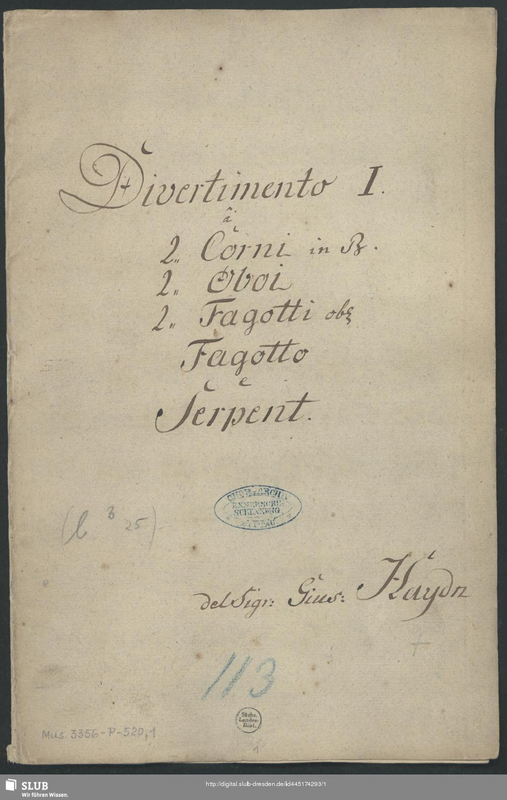 Divertimento I.
â
2,, Corni in B.
2,, Oboi
2,, Fagotti
Fagotto
e
Serpent.
(b 3 25)
del Sigr: Gius: Haydn
113
Sächs.
Landes-
Bibl.
Mus. 3356-P-520,1
SLUB
Wir führen Wissen.
http://digital.slub-dresden.de/id445174293/1